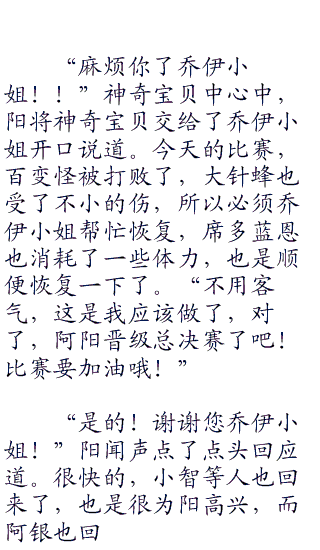 “麻烦你了乔伊小
姐！！”神奇宝贝中心中，
阳将神奇宝贝交给了乔伊小
姐开口说道。今天的比赛，
百变怪被打败了，大针蜂也
受了不小的伤，所以必须乔
伊小姐帮忙恢复，席多蓝恩
也消耗了一些体力，也是顺
便恢复一下了。“不用客
气，这是我应该做了，对
了，阿阳晋级总决赛了吧！
比赛要加油哦！”
“是的！谢谢您乔伊小
姐！”阳闻声点了点头回应
道。很快的，小智等人也回
来了，也是很为阳高兴，而
阿银也回